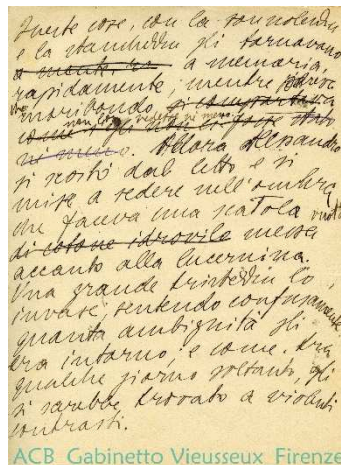 Queste cose, con la sonnolenza
e la stanchezza gli tornavano
a mente, ra a memoria,
rapidamente, mentre
moribondo, si comportava
come egli non ci fosse stato
Allora Alessandro
si scostò dal letto e si
mise a sedere nell'ombra
che faceva una scatola vuota
di cotone idrovilo messa
accanto alla lucernina.
Una grande tristezza lo
invase, sentendo confusamente
quanta ambiguità gli
era intorno, e come, tra
qualche giorno soltanto, gli
si sarebbe trovato a violenti
contrasti.
ACB Gabinetto Vieusseux Firenze